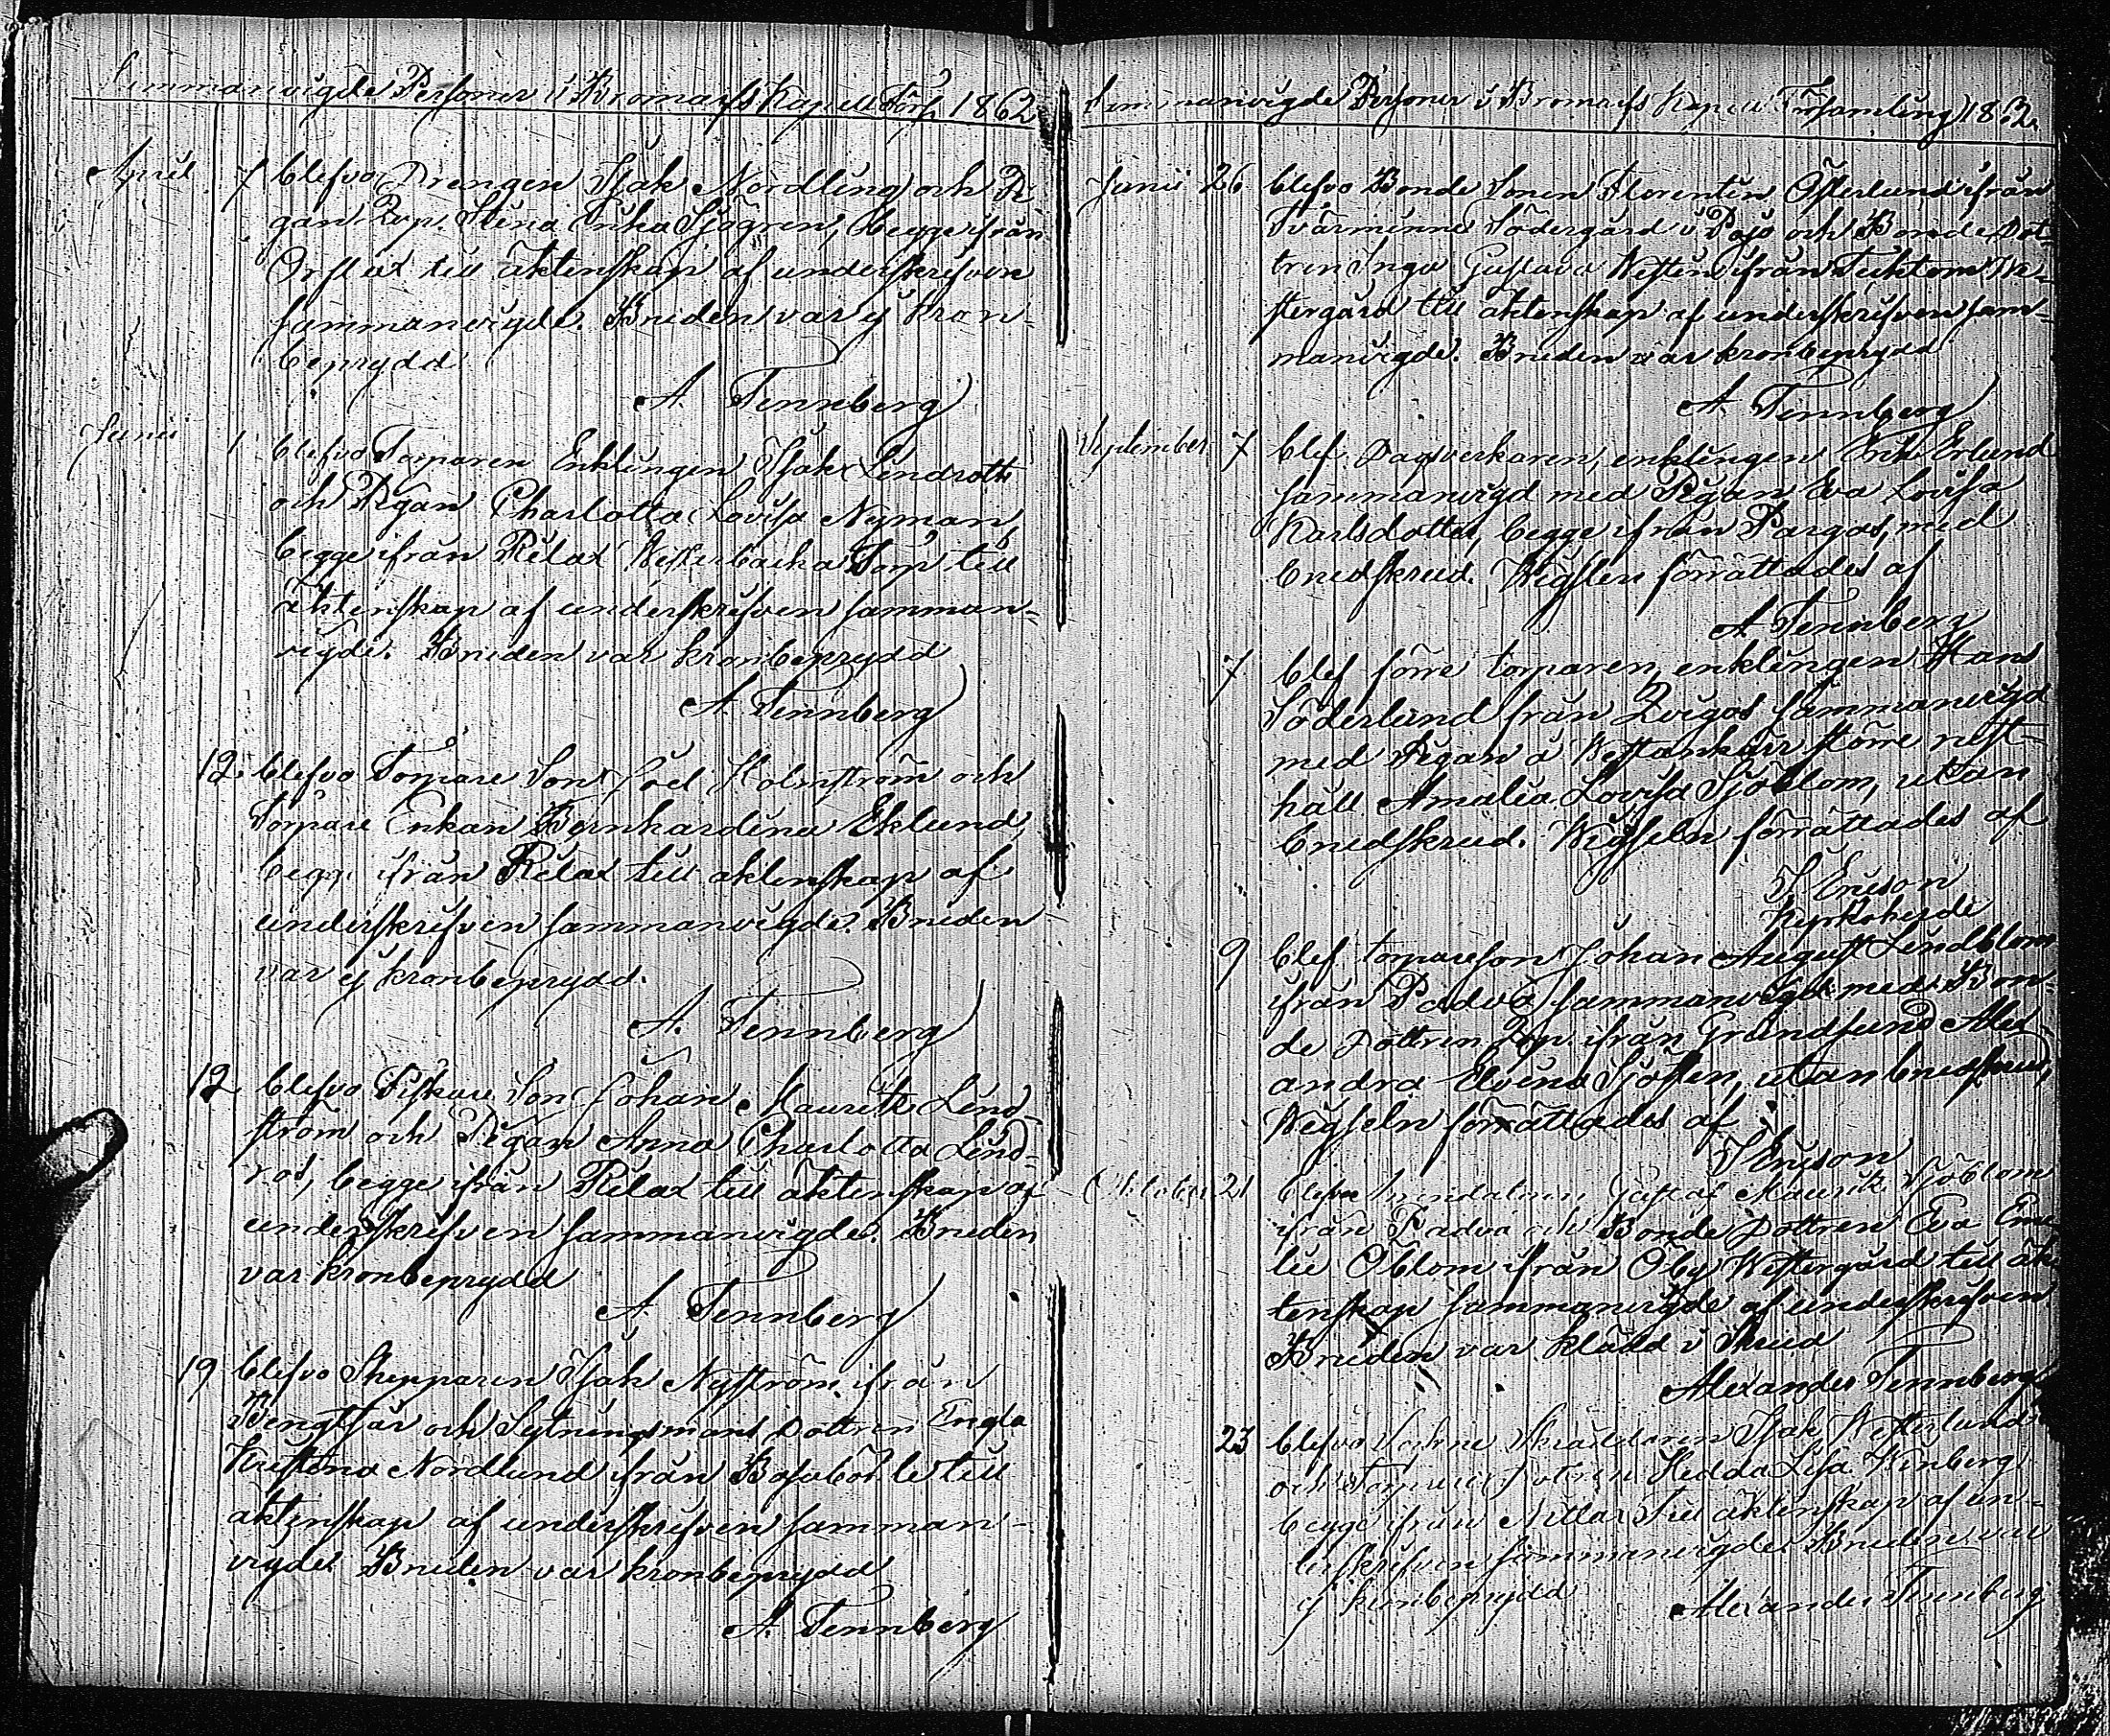 Sammanvigde Personer i Bromarfs Kapell Förs 1862
April 7 blefvo Drengen Isak Nordling och Pi
gan Stina Sjögren, begge ifrån
till äktenskap af underskrifven
sammanvigde. Bruden var ej kron-
beprydd
A. Tennberg
Junii 1 blefvo Torparen Enklingen Isak Lindroth
och Pigan Charlotta Lovisa Nyman,
begge ifrån Rilax Westerbacka Torp till
äktenskap af underskrifven samman-
vigde. Bruden var kronbeprydd
A. Tennberg
12 blefvo Torpare Son Joel Holmström och
Torpare Enkan Bernhardina Eklund,
begge ifrån Rilax till äktenskap af
underskrifven sammanvigde. Bruden
var ej kronbeprydd.
A. Tennberg
12 blefvo Fiskare Son Johan Mauritz Lind-
ström och Pigan Anna Charlotta Lind-
ros, begge ifrån Rilax till äktenskap af
underskrifven sammanvigde. Bruden
var kronbeprydd
A. Tennberg
19 blefvo Skepparen Isak Nyström ifrån
Bengtsår och Sytningsmans Dottren Engla
Kristina Nordlund ifrån Basaböhle till
äktenskap af underskrifven samman-
vigde. Bruden var kronbeprydd
A. Tennberg
Sammanvigde Personer i Bromarfs Kapell Församling 1862.
Junii 26 blefvo Bonde Sonen Florentin Österlund ifrån
Tvärminne Södergård i Pojo och Bonde Dot-
tren Inga Gustava Westén ifrån Täktom We-
stergård till äktenskap af underskrifven sam-
manvigde. Bruden var kronbeprydd
A. Tennberg
September 7 blef Dagsverkaren, enklingen Erik Erlund
sammanvigd med Pigan Eva Lovisa
Karlsdotter, begge ifrån Pargas, med
brudskrud. Wigseln förrättades af
A. Tennberg
7 blef förre torparen, enklingen Hans
Söderlund från sammanvigd
med Pigan å Westankärr större rust-
håll Amalia Lovisa Sjöblom, utan
brudskrud. Wigseln förrättades af
I Ericson
kyrkoherde
9 blef torpareson Johan August Lindblom
ifrån Padva sammanvigd med Bon-
de Dottren ifrån Grundsund Alex
andra Elvina Sjösten, utan brudskrud,
Wigseln förrättades af
I Ericson
Oktober 21 blefvo Gustaf Mauritz Sjöblom
ifrån Padva och Bonde Dottren Eva Emi
lie Öblom ifrån Öby Westergård till äk
tenskap sammanvigde af underskrifven
Bruden var klädd i Skrud
Alexander Tennberg
23 blefvo Sockne Skräddaren Isak Westerlund
och Torpare Dottren Hedda Lisa Winberg
begge ifrån Till äktenskap af un-
derskrifven sammanvigde Bruden var
ej kronbeprydd
Alexander Tennberg